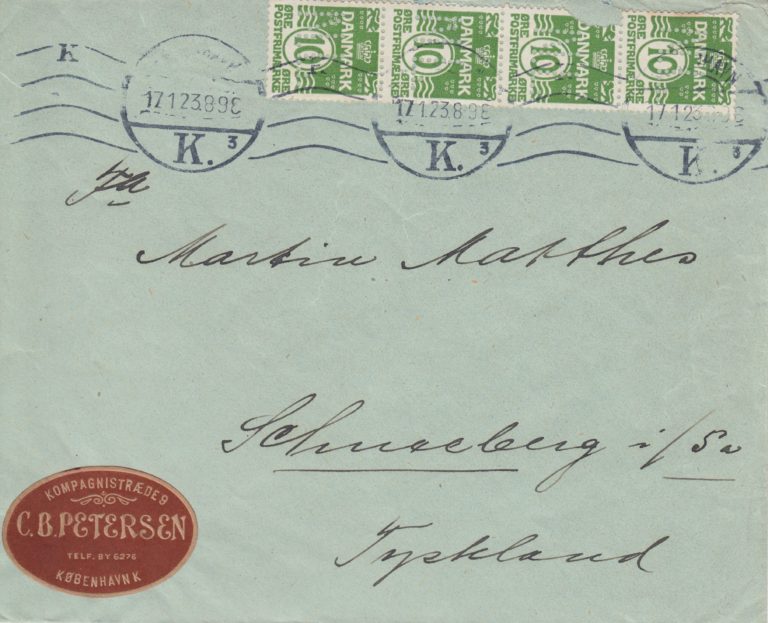 DANMARK 10 ØRE POSTFRIMÆRKE
DANMARK 10 ØRE POSTFRIMÆRKE
DANMARK 10 ØRE POSTFRIMÆRKE
DANMARK 10 ØRE POSTFRIMÆRKE
K
17.1.23.8-9E
K. 3
17.1.23.8-9E
K. 3
17.1.23
K. 3
Fa
Martin Matthes
Schneeberg i/Sa
Tyskland
KOMPAGNISTRÆDE 9
C.B.PETERSEN
TELF. BY 6276
KØBENHAVN K